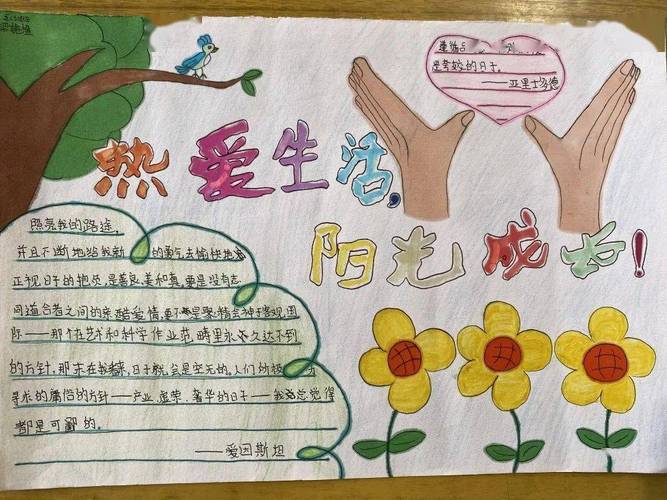 热爱生活,
阳光成长!
是美妙的日子。
——亚里士多德
照亮我的路途,
并且不断地给我新的勇气去愉快地
正视日子的抱负,是善良、美和真,要是没有志
同道合者之间的亲酷爱情,要不是聚精会神于客观国
际——那个在艺术和科学作业范畴里永久达不到
的方针,那末在我看来,日子就会是空无的,人们的
寻求的庸俗的方针——产业、虚荣、奢华的日子——我总觉得
都是可鄙的。
——爱因斯坦